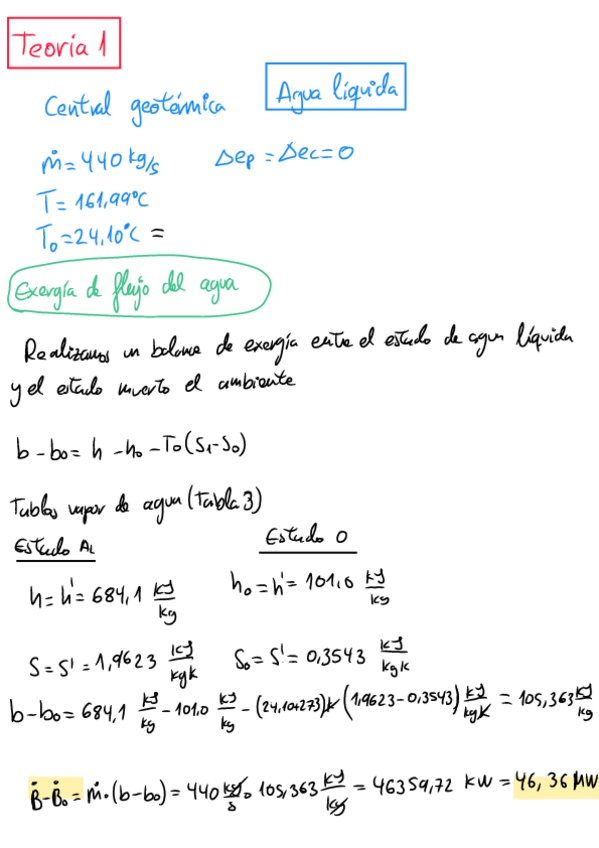 Teoría 1
Central geotérmica
Agua líquida
ṁ = 440 kg/s
Δep = Δec = 0
T = 161,99°C
T₀ = 24,10°C =
Exergía de flujo del agua
Realizamos un balance de exergía entre el estado de agua líquida
y el estado muerto el ambiente
b - b₀ = h - h₀ - T₀(S₁-S₀)
Tablas vapor de agua (Tabla 3)
Estado AL
Estado 0
h = h' = 684,1 kJ/kg
h₀ = h' = 101,0 kJ/kg
S = S' = 1,9623 kJ/kgK
S₀ = S' = 0,3543 kJ/kgK
b - b₀ = 684,1 kJ/kg - 101,0 kJ/kg - (24,10+273)K (1,9623 - 0,3543) kJ/kgK = 105,363 kJ/kg
Ḃ - Ḃ₀ = ṁ·(b-b₀) = 440 kg/s · 105,363 kJ/kg = 46359,72 kW = 46,36 MW